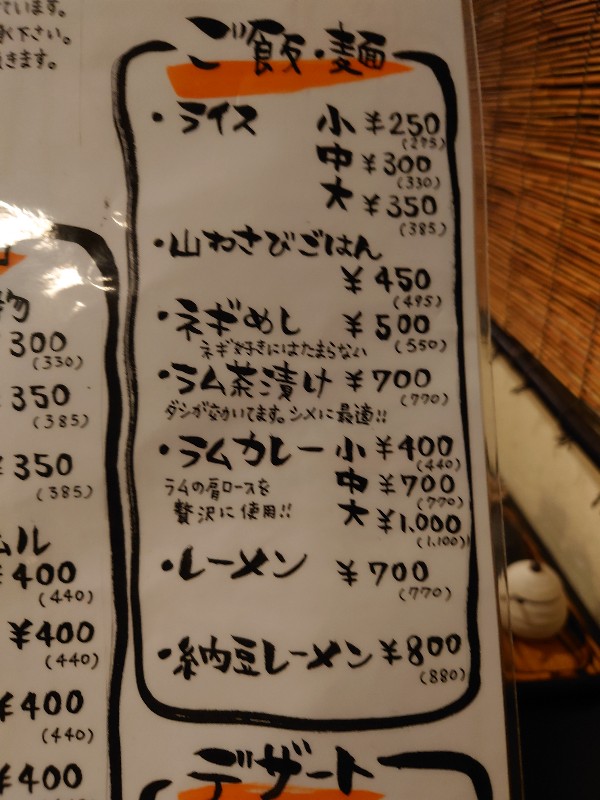 ています。
下さい。
きます。
ご飯・麺
・ライス 小 ¥250
(275)
中 ¥300
(330)
大 ¥350
(385)
・山わさびごはん
¥450
(495)
・ネギめし ¥500
ネギ好きにはたまらない (550)
・ラム茶漬け ¥700
(770)
ダシが効いてます。シメに最適!!
・ラムカレー 小 ¥400
(440)
ラムの肩ロースを 中 ¥700
(770)
贅沢に使用!! 大 ¥1,000
(1,100)
・レーメン ¥700
(770)
・納豆レーメン ¥800
(880)
デザート
物
300
(330)
350
(385)
¥350
(385)
ムル
¥400
(440)
¥400
(440)
¥400
(440)
¥400